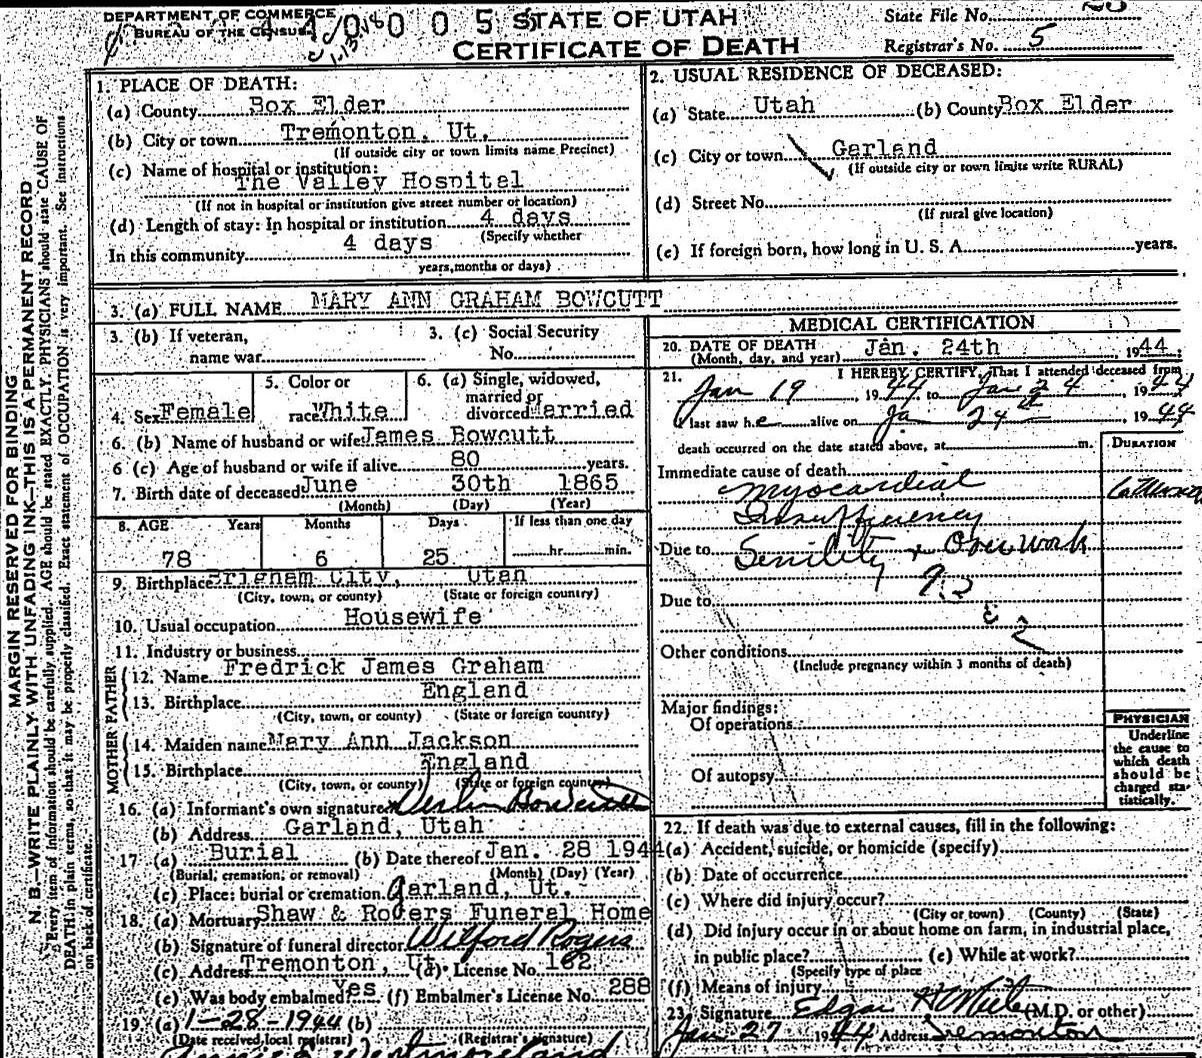 DEPARTMENT OF COMMERCE
BUREAU OF THE CENSUS
0 0 0 5
STATE OF UTAH
CERTIFICATE OF DEATH
State File No.
Registrar's No. 5
MARGIN RESERVED FOR BINDING
N. B.—WRITE PLAINLY WITH UNFADING INK—THIS IS A PERMANENT RECORD
Every item of information should be carefully supplied. AGE should be stated EXACTLY. PHYSICIANS should state CAUSE OF
DEATH in plain terms, so that it may be properly classified. Exact statement of OCCUPATION is very important. See instructions
on back of certificate.
1. PLACE OF DEATH:
(a) County Box Elder
(b) City or town Tremonton, Ut.
(If outside city or town limits name Precinct)
(c) Name of hospital or institution:
The Valley Hospital
(If not in hospital or institution give street number or location)
(d) Length of stay: In hospital or institution 4 days
(Specify whether
In this community 4 days
years, months or days)
2. USUAL RESIDENCE OF DECEASED:
(a) State Utah (b) County Box Elder
(c) City or town Garland
(If outside city or town limits write RURAL)
(d) Street No.
(If rural give location)
(e) If foreign born, how long in U. S. A. years.
3. (a) FULL NAME MARY ANN GRAHAM BOWCUTT
3. (b) If veteran,
name war
3. (c) Social Security
No.
4. Sex Female
5. Color or
race White
6. (a) Single, widowed,
married or
divorced Married
6. (b) Name of husband or wife James Bowcutt
6 (c) Age of husband or wife if alive 80 years.
7. Birth date of deceased June 30th 1865
(Month) (Day) (Year)
8. AGE Years Months Days If less than one day
78 6 25 hr. min.
9. Birthplace Brigham City, Utah
(City, town, or county) (State or foreign country)
10. Usual occupation Housewife
11. Industry or business
FATHER
12. Name Fredrick James Graham
13. Birthplace England
(City, town, or county) (State or foreign country)
MOTHER
14. Maiden name Mary Ann Jackson
15. Birthplace England
(City, town, or county) (State or foreign country)
16. (a) Informant's own signature Bowcutt
(b) Address Garland, Utah
17 (a) Burial (b) Date thereof Jan. 28 1944
(Burial, cremation, or removal) (Month) (Day) (Year)
(c) Place: burial or cremation Garland, Ut.
18. (a) Mortuary Shaw & Rogers Funeral Home
(b) Signature of funeral director Wilford Rogers
(c) Address Tremonton, Ut. (d) License No. 162
(e) Was body embalmed? Yes (f) Embalmer's License No. 288
19. (a) 1-28-1944 (b)
(Date received local registrar) (Registrar's signature)
Westmoreland
MEDICAL CERTIFICATION
20. DATE OF DEATH
(Month, day, and year) Jan. 24th, 1944;
21. I HEREBY CERTIFY, That I attended deceased from
Jan 19, 1944 to Jan 24, 1944
I last saw h e alive on Ja 24, 1944
death occurred on the date stated above, at m.
DURATION
Immediate cause of death
Myocardial
Insufficiency
Due to Senility & Overwork
Due to
Other conditions
(Include pregnancy within 3 months of death)
Major findings:
Of operations
Of autopsy
PHYSICIAN
Underline
the cause to
which death
should be
charged sta-
tistically.
22. If death was due to external causes, fill in the following:
(a) Accident, suicide, or homicide (specify)
(b) Date of occurrence
(c) Where did injury occur?
(City or town) (County) (State)
(d) Did injury occur in or about home on farm, in industrial place,
in public place? (e) While at work?
(Specify type of place
(f) Means of injury
23. Signature Edgar H White (M.D. or other)
Jan 27 1944 Address Tremonton